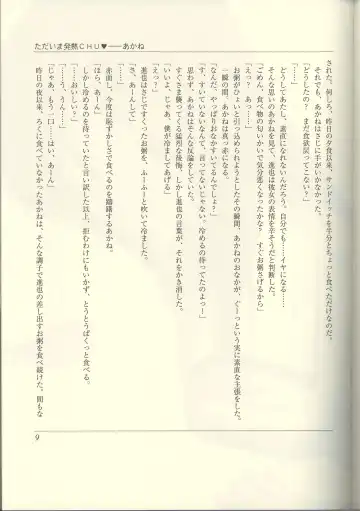 ただいま発熱CHU♥——あかね
された。何しろ、昨日の夕食以来、サンドイッチを半分とちょっと食べただけなのだ。
それでも、あかねはさじに手がいかなかった。
「どうしたの？　まだ食欲回ってこない？」
「えっ？」
どうしてあたし、素直になれないんだろう。自分でも…イヤになる…
そんな思いのあかねを見て、進也は彼女の表情を辛そうだと判断した。
「ごめん、食べ物の匂いかいで気分悪くなったかな？　すぐお粥さげるから」
「えっ、さげ……」
お粥がひょいと引っ込められようとしたその瞬間、あかねのおなかが、ぐーっという実に素直な主張をした。
一瞬の間、あかねは真っ赤になる。
「なんだ、やっぱりおなかすいてるんでしょ？」
「す、すいていないなんて、言ってないじゃない。冷めるの待ってたのよー！」
思わず、あかねはそんな反論をしていた。
すぐさま襲ってくる猛烈な後悔、しかし、進也の言葉が、それをかき消した。
「いいよ、じゃあ、僕が冷ましてあげる」
「えっ？」
進也はさじですくったお粥を、ふーふーと吹いて冷ました。
「さ、あーんして」
「え……」
赤面し、今度は恥ずかしさで食べるのを躊躇するあかね。
「ほら、あーん！」
しかし冷めるのを待っていたと言い訳した以上、拒むわけにもいかず、とうとうぱくっと食べる。
「……う、うん……」
「どう、おいしい？」
「じゃあ、もう一口……はい、あーん」
昨日の夜以来、ろくに食べていなかったあかねは、そんな調子で進也の差し出すお粥を食べ続けた。間もな
9